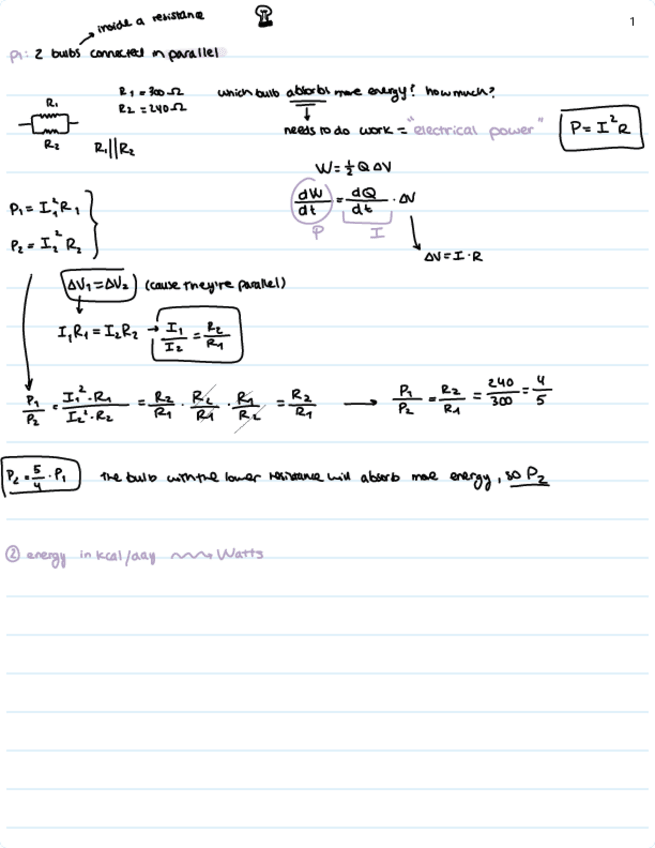 1
inside a resistance
P1: 2 bulbs connected in parallel
R1 = 300 Ω which bulb absorbs more energy? how much?
R2 = 240 Ω
R1
R2
R1||R2
needs to do work = "electrical power"
P = I²R
W = ½ Q ΔV
dW/dt = dQ/dt · ΔV
P I
ΔV = I · R
P1 = I1² R1
P2 = I2² R2
ΔV1 = ΔV2 (cause they're parallel)
I1R1 = I2R2 → I1/I2 = R2/R1
P1/P2 = I1²·R1/I2²·R2 = R2/R1 · R2/R1 · R1/R2 = R2/R1 → P1/P2 = R2/R1 = 240/300 = 4/5
P2 = 5/4 · P1 the bulb with the lower resistance will absorb more energy, so P2
② energy in kcal/day → Watts